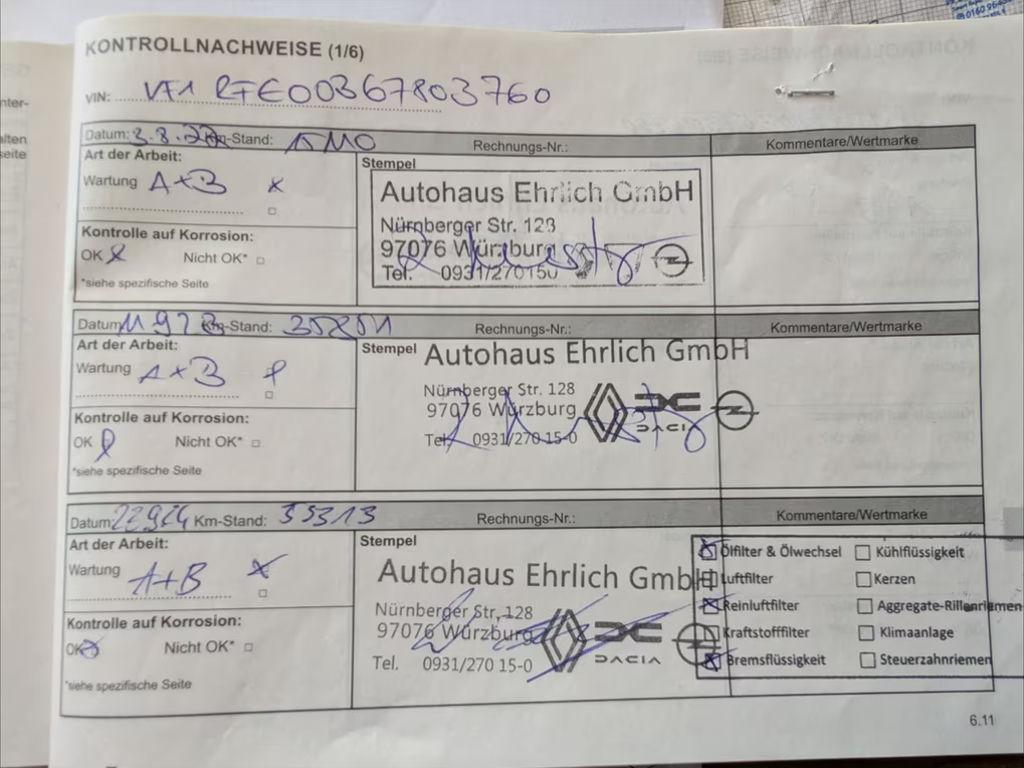 KONTROLLNACHWEISE (1/6)
VIN: VF1 RFE00367803760
Datum: 3.8.22 Km-Stand: Rechnungs-Nr.: Kommentare/Wertmarke
Art der Arbeit:
Wartung A+B x
Stempel
Autohaus Ehrlich GmbH
Nürnberger Str. 128
97076 Würzburg
Tel. 0931/270150
Kontrolle auf Korrosion:
OK Nicht OK*
*siehe spezifische Seite
Datum: Km-Stand: Rechnungs-Nr.: Kommentare/Wertmarke
Art der Arbeit:
Wartung A+B
Stempel
Autohaus Ehrlich GmbH
Nürnberger Str. 128
97076 Würzburg
Tel. 0931/270 15-0
DACIA
Kontrolle auf Korrosion:
OK Nicht OK*
*siehe spezifische Seite
Datum: 22 9 24 Km-Stand: 35313 Rechnungs-Nr.: Kommentare/Wertmarke
Art der Arbeit:
Wartung A+B x
Stempel
Autohaus Ehrlich GmbH
Nürnberger Str. 128
97076 Würzburg
Tel. 0931/270 15-0
DACIA
Ölfilter & Ölwechsel Kühlflüssigkeit
Luftfilter Kerzen
Reinluftfilter Aggregate-Rillenriemen
Kraftstofffilter Klimaanlage
Bremsflüssigkeit Steuerzahnriemen
Kontrolle auf Korrosion:
OK Nicht OK*
*siehe spezifische Seite
6.11